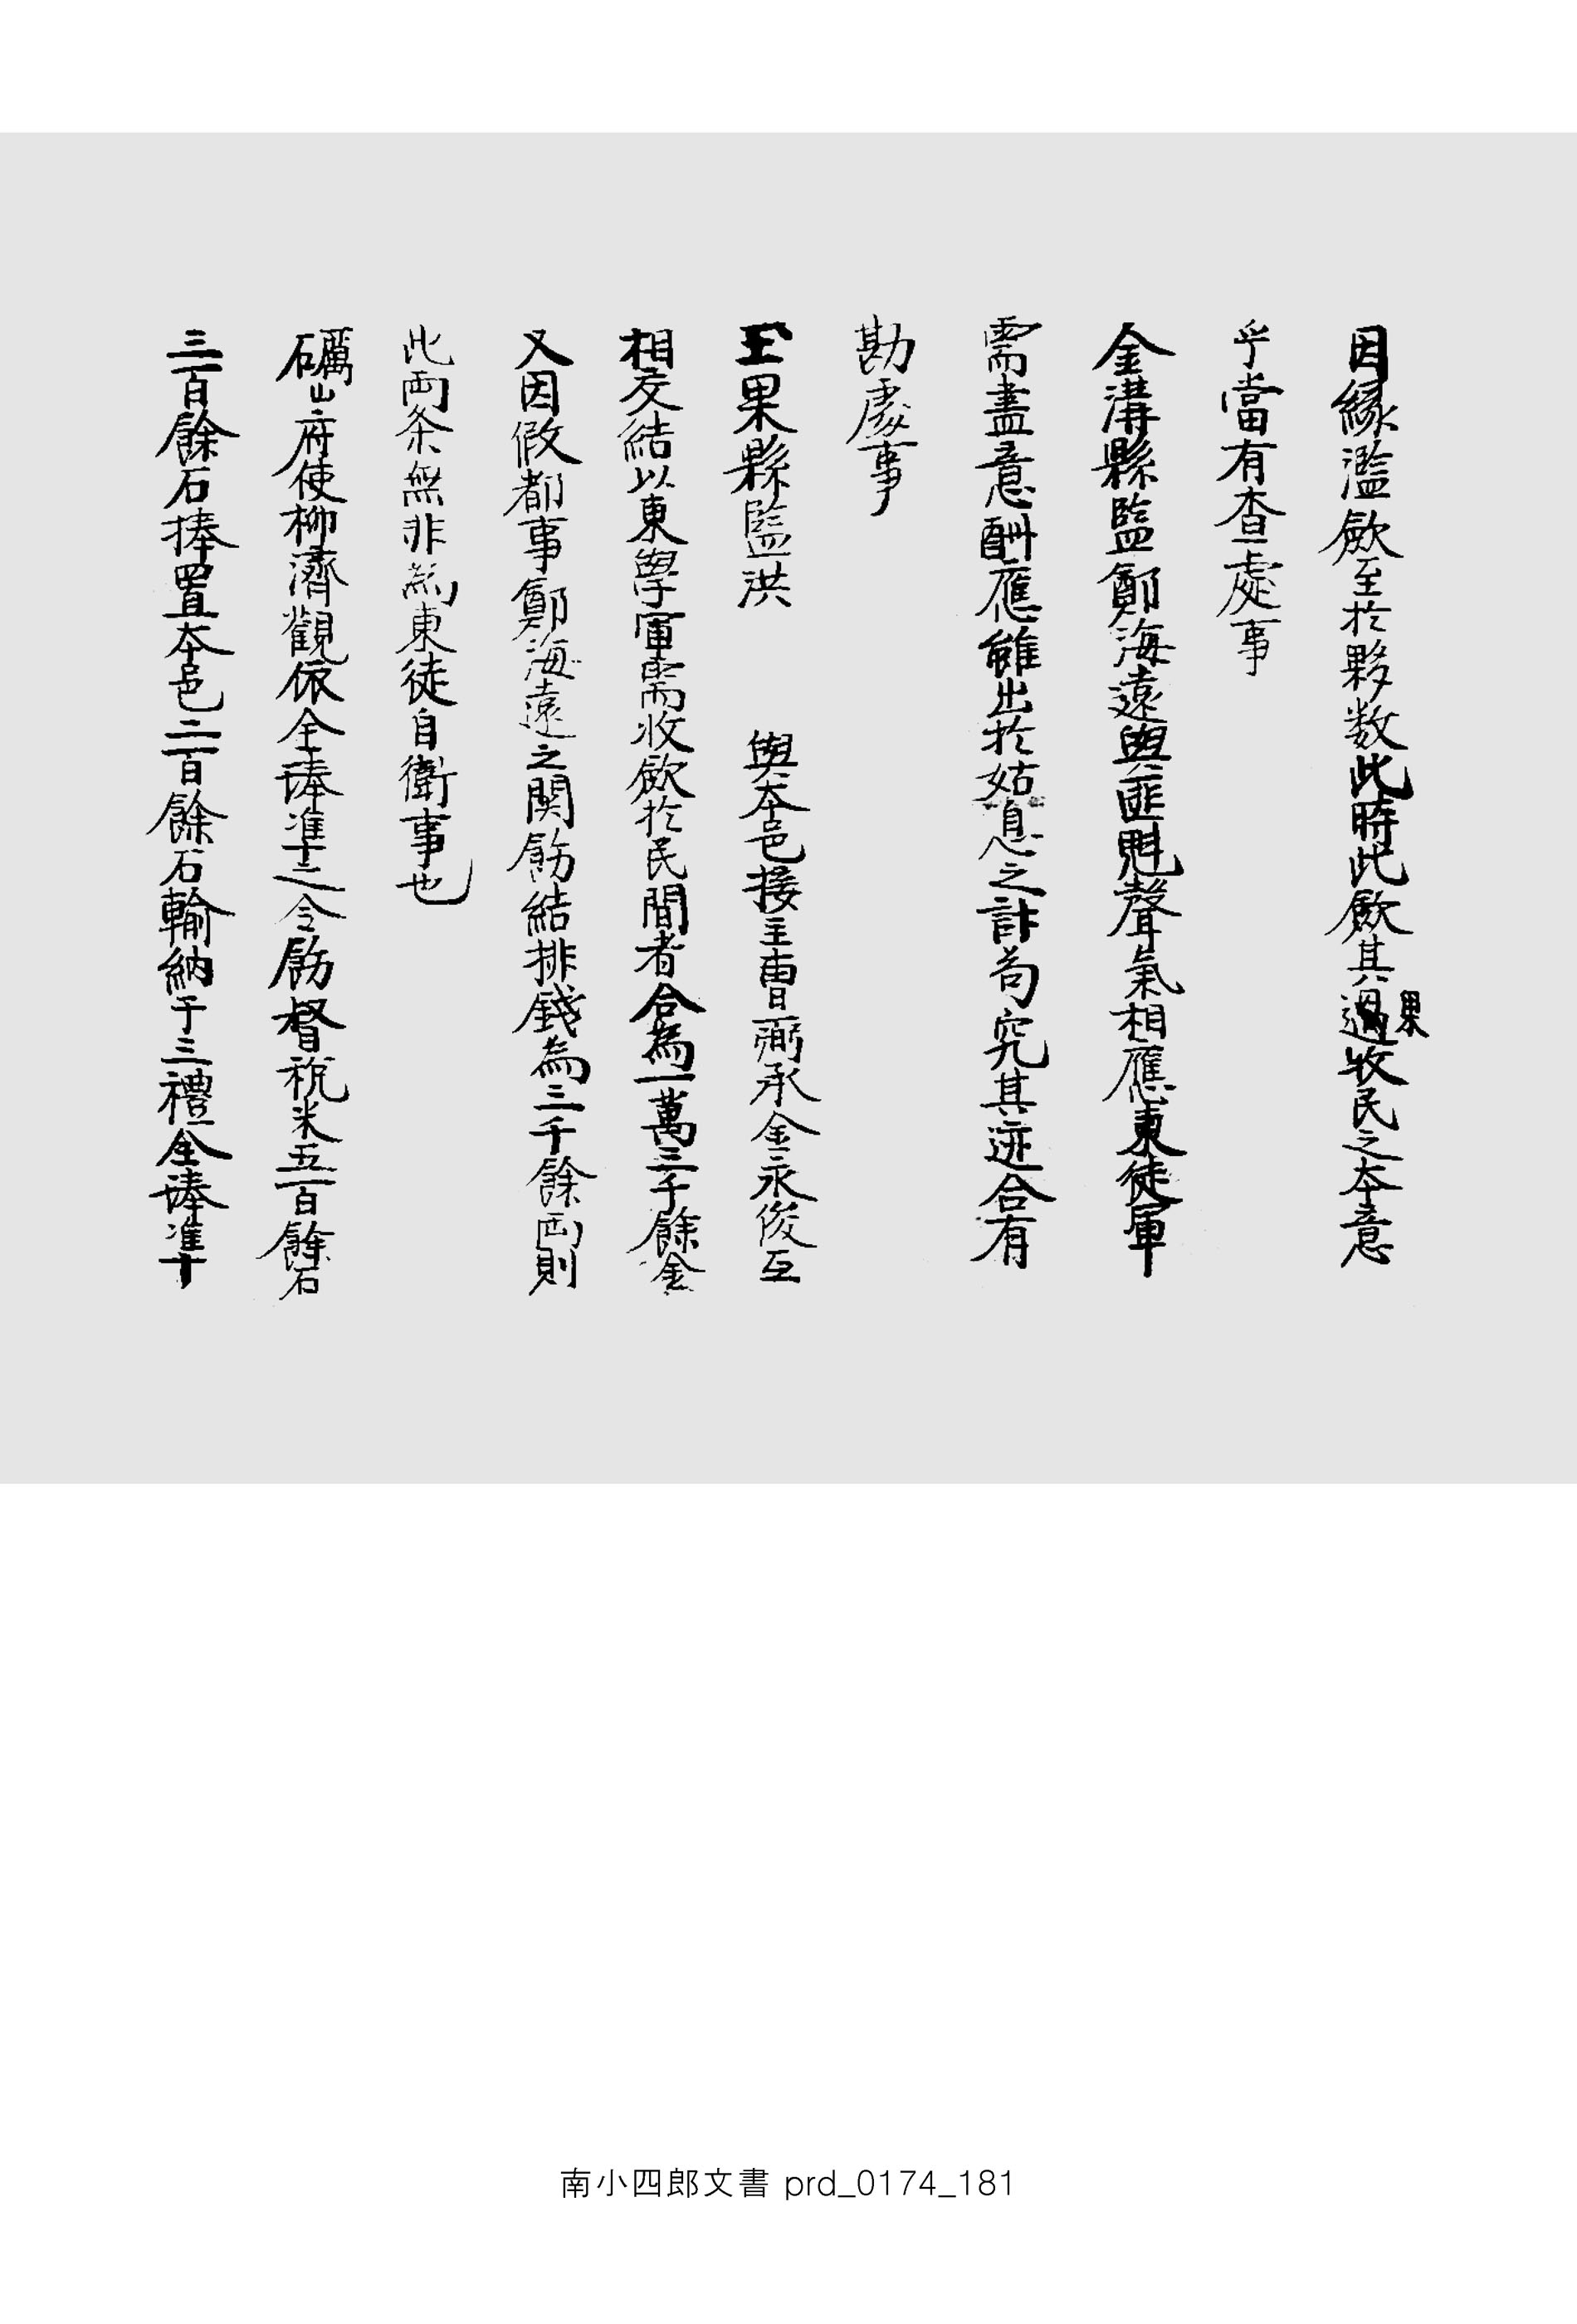 因緣濫歛至於夥数此時此歛其果牧民之本意
乎當有查處事
金溝縣監鄭海遠與匪魁聲氣相應東徒軍
需盡意酬應雖出於姑息之計苟究其迹合有
勘處事
玉果縣監洪　　與本邑接主曺彌承金永俊互
相交結以東學軍需收歛於民間者合為一萬三千餘金
又因假都事鄭海遠之関飭結排錢為三千餘両則
此両条無非爲東徒自衛事也
礪山府使柳濟觀依全琫準之令飭督稅米五百餘石
三百餘石捧置本邑二百餘石輸納于三禮全琫準
南小四郎文書 prd_0174_181